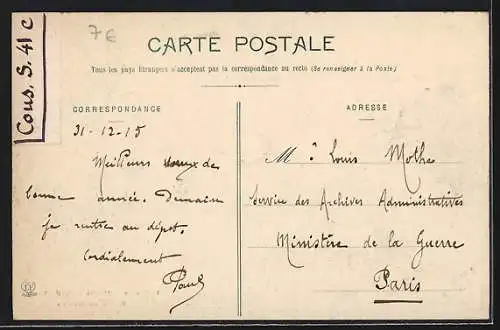 7€
CARTE POSTALE
Tous les pays Étrangers n'acceptent pas la correspondance au recto (Se renseigner à la Poste)
Cous. S. 41 C
CORRESPONDANCE
31-12-15
Meilleurs voeux de
bonne année. Demain
je rentre au dépôt.
Cordialement
Paul
ADRESSE
Mr Louis Mothe
Service des Archives Administratives
Ministère de la Guerre
Paris